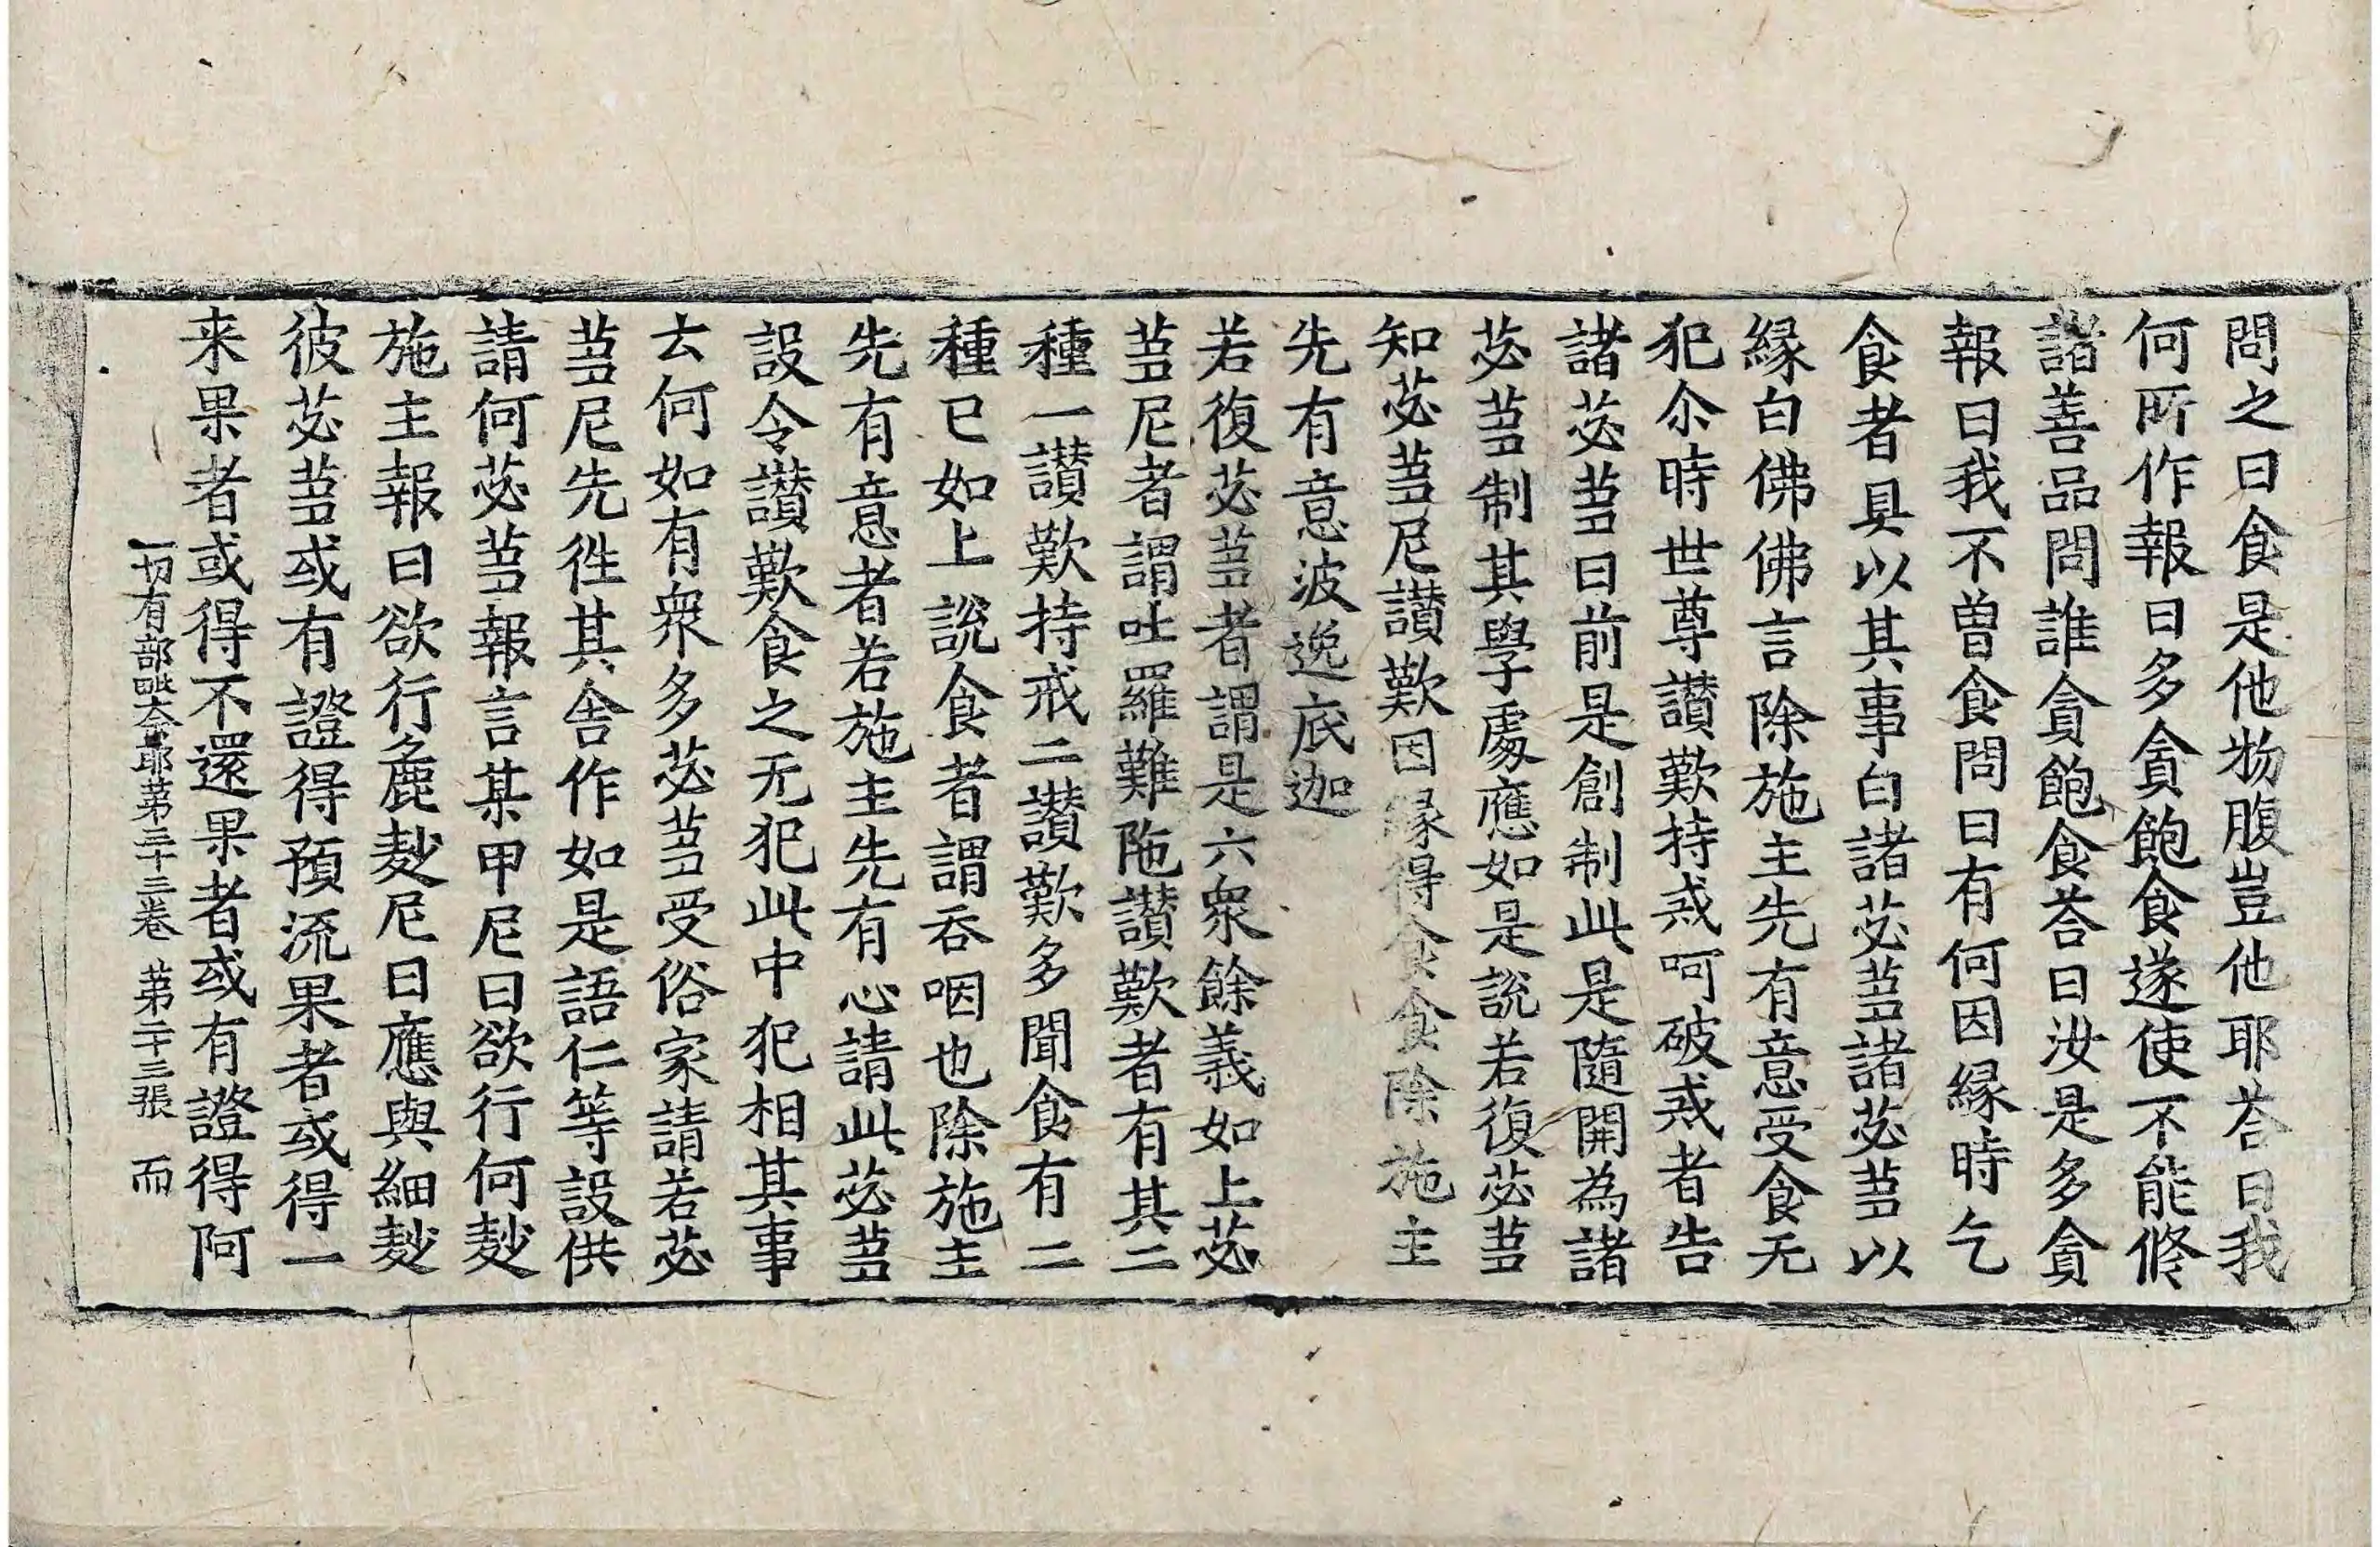 問之曰食是他物腹豈他耶荅曰我
何所作報曰多貪飽食遂使不能修
諸善品問誰貪飽食荅曰汝是多貪
報曰我不曾食問曰有何因縁時乞
食者具以其事白諸苾蒭諸苾蒭以
縁白佛佛言除施主先有意受食无
犯尒時世尊讃歎持戒呵破戒者告
諸苾蒭曰前是創制此是隨開為諸
苾蒭制其學處應如是說若復苾蒭
知苾蒭尼讃歎因縁得食食除施主
先有意波逸底迦
若復苾蒭者謂是六衆餘義如上苾
蒭尼者謂吐羅難陁讃歎者有其二
種一讃歎持戒二讃歎多聞食有二
種已如上說食者謂吞咽也除施主
先有意者若施主先有心請此苾蒭
設令讃歎食之无犯此中犯相其事
云何如有衆多苾蒭受俗家請若苾
蒭尼先徃其舎作如是語仁等設供
請何苾蒭報言某甲尼曰欲行何麨
施主報曰欲行麁麨尼曰應與細麨
彼苾蒭或有證得預流果者或得一
来果者或得不還果者或有證得阿
一切有部毗奈耶第三十三卷 第二十三張 而